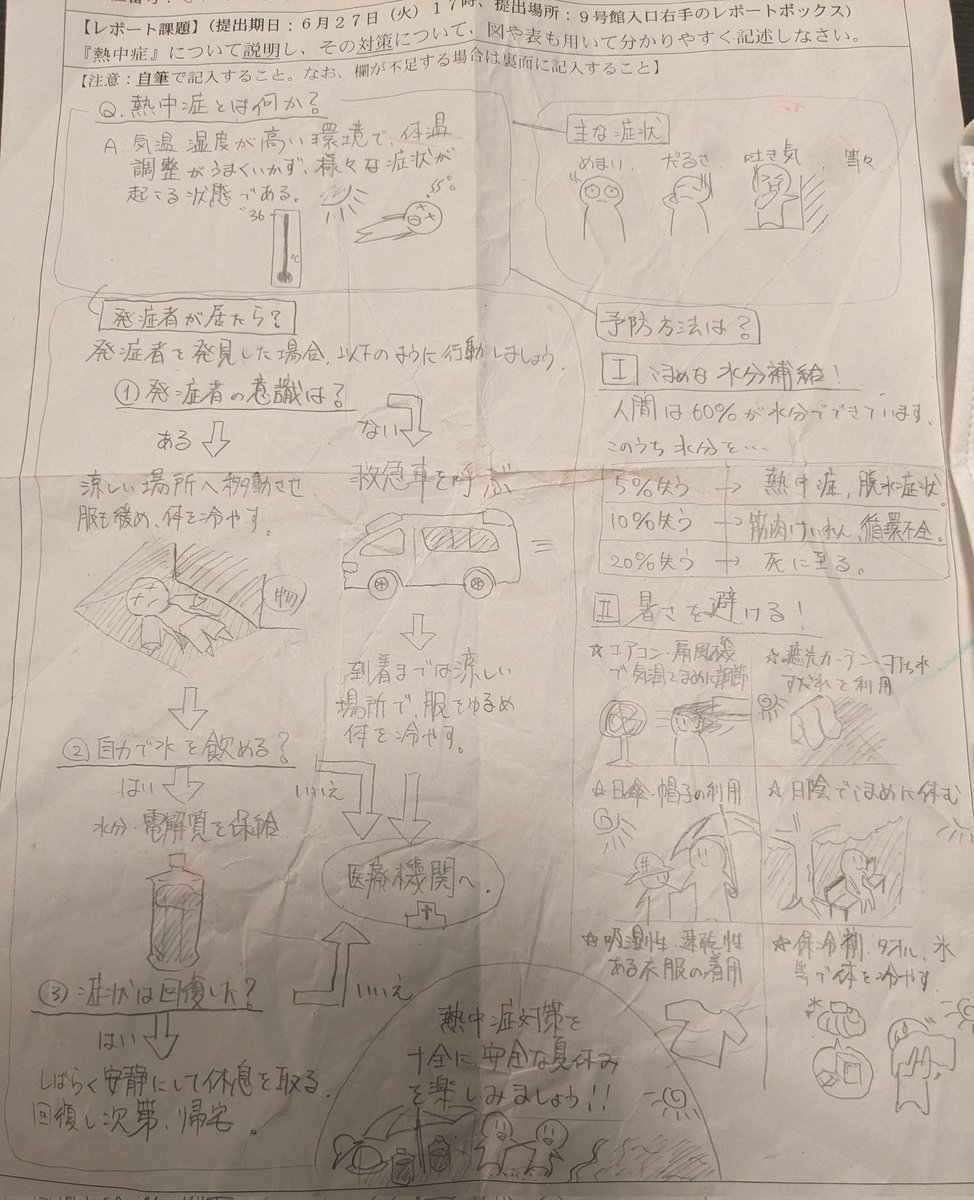 【レポート課題】(提出期日:6月27日(火)17時、提出場所:9号館入口右手のレポートボックス)
『熱中症』について説明し、その対策について、図や表も用いて分かりやすく記述しなさい。
【注意:自筆で記入すること。なお、欄が不足する場合は裏面に記入すること】
Q. 熱中症とは何か?
A. 気温 湿度が高い環境で、体温
調整がうまくいかず、様々な症状が
起こる状態である。
36
℃
主な症状
めまい、だるさ、吐き気、等々
発症者が居たら?
発症者を発見した場合、以下のように行動しましょう
① 発症者の意識は?
ある
ない
涼しい場所へ移動させ、
服も緩め、体を冷やす。
救急車を呼ぶ
到着までは涼しい
場所で、服をゆるめ
体を冷やす。
② 自力で水を飲める?
はい
いいえ
水分・電解質を保給
医療機関へ。
③ 症状は回復した?
はい
いいえ
しばらく安静にして休息を取る。
回復し次第、帰宅。
予防方法は?
I こまめな水分補給!
人間は60%が水分でできています、
このうち水分を…
5%失う → 熱中症、脱水症状。
10%失う → 筋肉けいれん、循環不全。
20%失う → 死に至る。
II 暑さを避ける!
☆エアコン・扇風機
で気温をこまめに調節
☆遮光カーテン・打ち水
すだれを利用
☆日傘・帽子の利用
☆日陰でこまめに休む
☆吸湿性・速乾性
ある衣服の着用
☆保冷剤、タオル、氷
等で体を冷やす。
熱中症対策を
十全に、安全な夏休み
を楽しみましょう!!